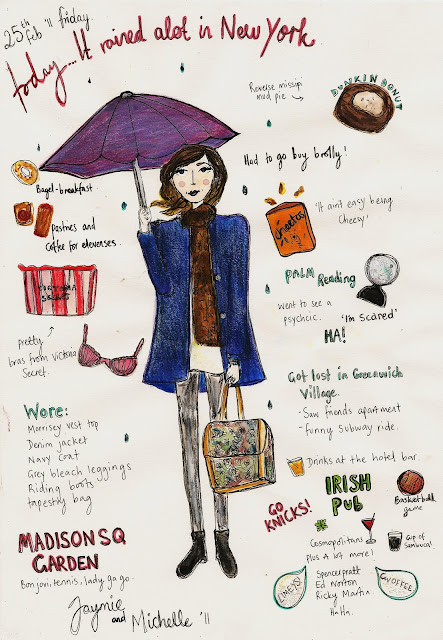 25th Feb '11 friday
today... It rained alot in New York
Reverse missip'
mud pie
DUNKIN DONUT
Had to go buy brolly!
Bagel-breakfast
Pastries and
Coffee for elevenses.
Cheetos
'It aint easy being
Cheesy'
PALM Reading
Went to see a
psychcic. 'I'm Scared'
HA!
VICTORIA
SECRET
pretty
bras from Victoria
Secret.
Got lost in Greenwich
Village.
- Saw friends apartment
- funny subway ride.
Wore:
Morrisey vest top
Denim jacket
Navy coat
Grey bleach leggings
Riding boots
tapestry bag
Drinks at the hotel bar
IRISH
PUB
Basketball
game
GO
KNICKS!
Cosmopolitans
plus A lot more!
Cup of
Sambuca!
MADISON SQ
GARDEN
Bon jovi, tennis, lady ga ga
LIMEYS!
Spencer pratt
Ed Norton
Ricky Martin
HaHa.
CWOFFEE
Jaymie
and Michelle '11